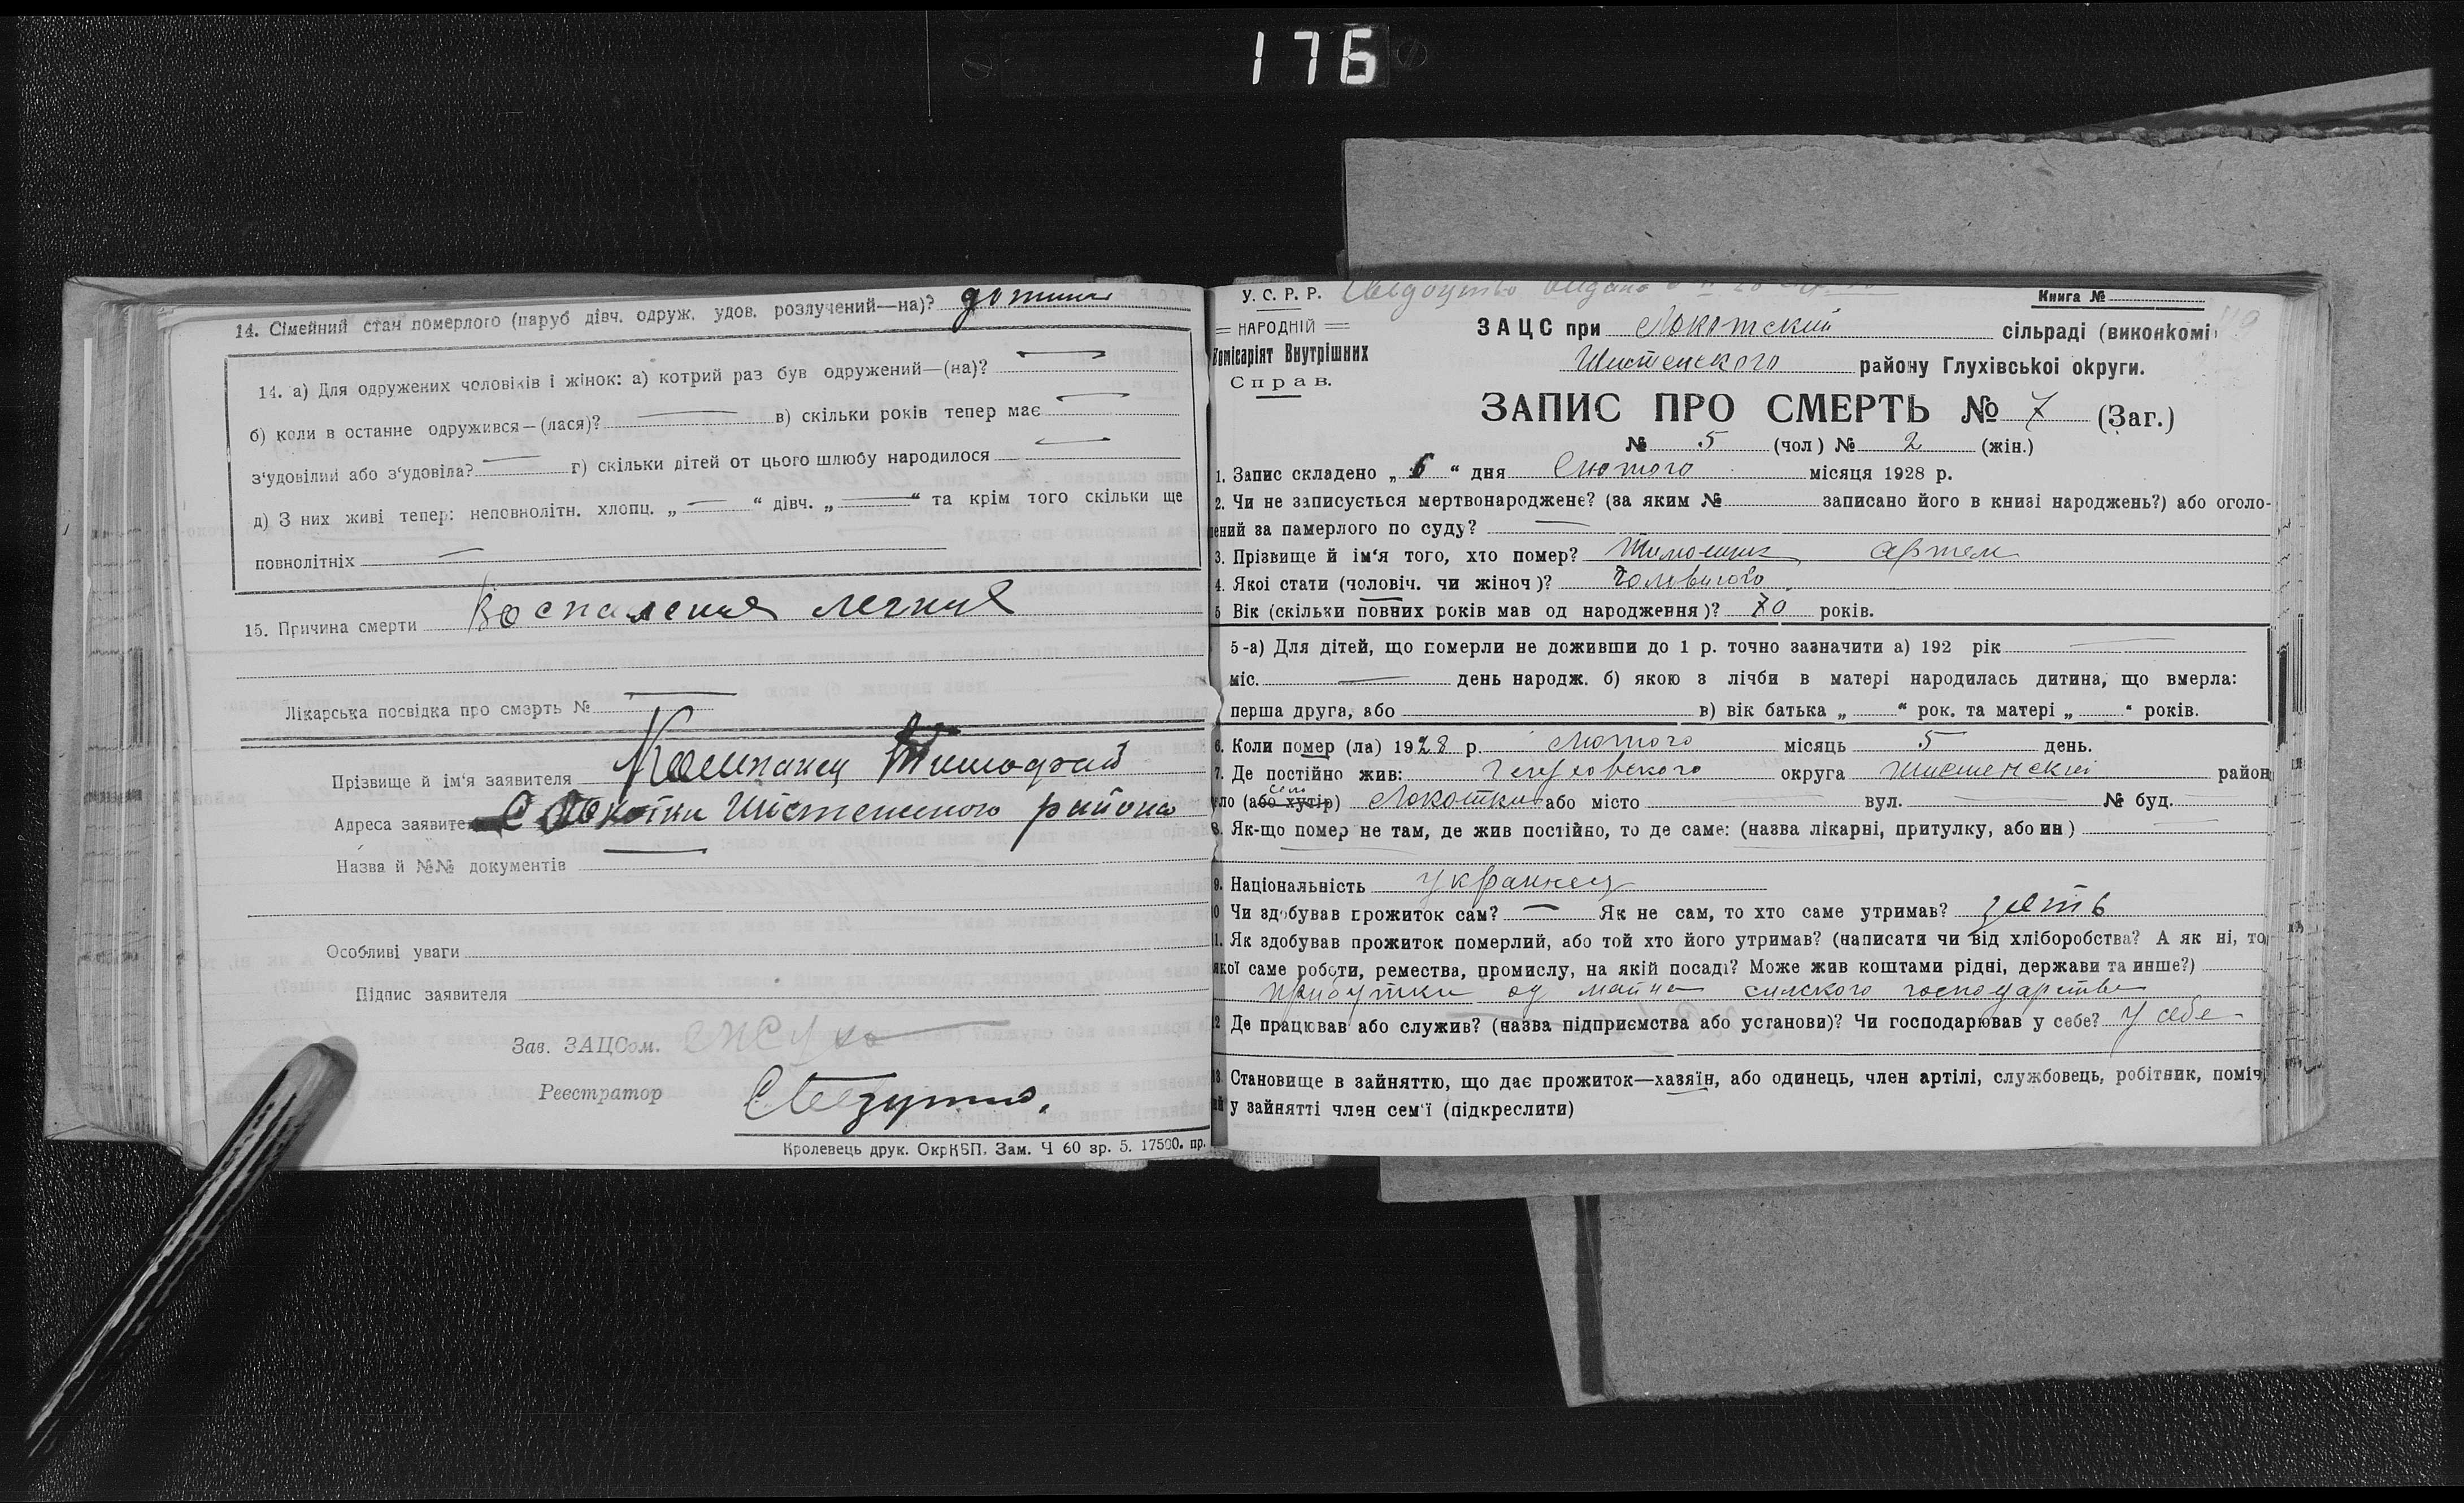 176
14. Сімейний стан померлого (паруб дівч. одруж. удов. розлучений—на)? дотина
14. а) Для одружених чоловіків і жінок: а) котрий раз був одружений—(на)?
б) коли в останне одружився—(лася)? в) скільки років тепер має
з‘удовілий або з‘удовіла? г) скільки дітей от цього шлюбу народилося
д) З них живі тепер: неповнолітн. хлопц. „ — “ дівч. „ — “ та крім того скільки ще
повнолітніх —
15. Причина смерти Воспаления легких
Лікарська посвідка про смерть № —
Прізвище й ім‘я заявителя Компанец Тимофей
Адреса заявите С Локотки Шістенского района
Назва й №№ документів —
Особливі уваги
Підпис заявителя
Зав. ЗАЦСом.
Реєстратор
Кролевець друк. ОкрКБП. Зам. Ч 60 зр. 5. 17500. пр.
У. С. Р. Р. Свідоцтво видано
Книга №
НАРОДНІЙ
Комісаріят Внутрішних
Справ.
ЗАЦС при Локотский сільраді (виконкомі
Шистенского району Глухівської округи.
ЗАПИС ПРО СМЕРТЬ № 7 (Заг.)
№ 5 (чол) № 2 (жін.)
1. Запис складено „ 6 “ дня Лютого місяця 1928 р.
2. Чи не записується мертвонароджене? (за яким № записано його в книзі народжень?) або оголо-
шений за памерлого по суду? —
3. Прізвище й ім‘я того, хто помер? Тимошик Артем
4. Якоі стати (чоловіч. чи жіноч)? Чоловичого
5 Вік (скільки повних років мав од народження)? 70 років.
5-а) Для дітей, що померли не доживши до 1 р. точно зазначити а) 192 рік —
міс. — день народж. б) якою з лічби в матері народилась дитина, що вмерла:
перша друга, або в) вік батька „ “ рок. та матері „ “ років.
6. Коли помер (ла) 1928 р. лютого місяць 5 день.
7. Де постійно жив: Глуховского округа Шистенский район
село
ло (або хутір) Локотки або місто — вул. — № буд. —
8. Як-що помер не там, де жив постійно, то де саме: (назва лікарні, притулку, або ин) —
9. Національність Украинец
10 Чи здобував прожиток сам? — Як не сам, то хто саме утримав? зять
11. Як здобував прожиток померлий, або той хто його утримав? (написати чи від хліборобства? А як ні, то
якої саме роботи, ремества, промислу, на якій посаді? Може жив коштами рідні, держави та инше?)
прибутки од майна силского господарства
12 Де працював або служив? (назва підприємства або установи)? Чи господарював у себе? у себе
13. Становище в зайняттю, що дає прожиток—хазяїн, або одинець, член артілі, службовець, робітник, поміч
ний у зайнятті член сем‘ї (підкреслити)